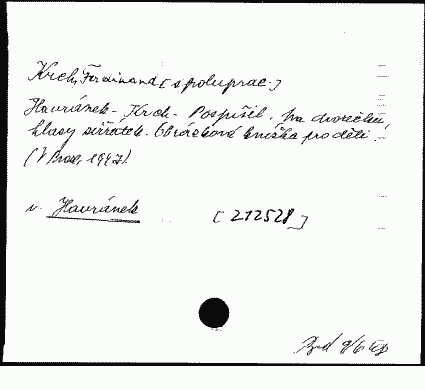 Krch, Ferdinand [spoluprac.]
Havránek - Krch - Pospíšil. Na dvorečku
hlasy zvířátek. Obrázková knížka pro děti.
(V Praze, 1947).
v. Havránek [212528]